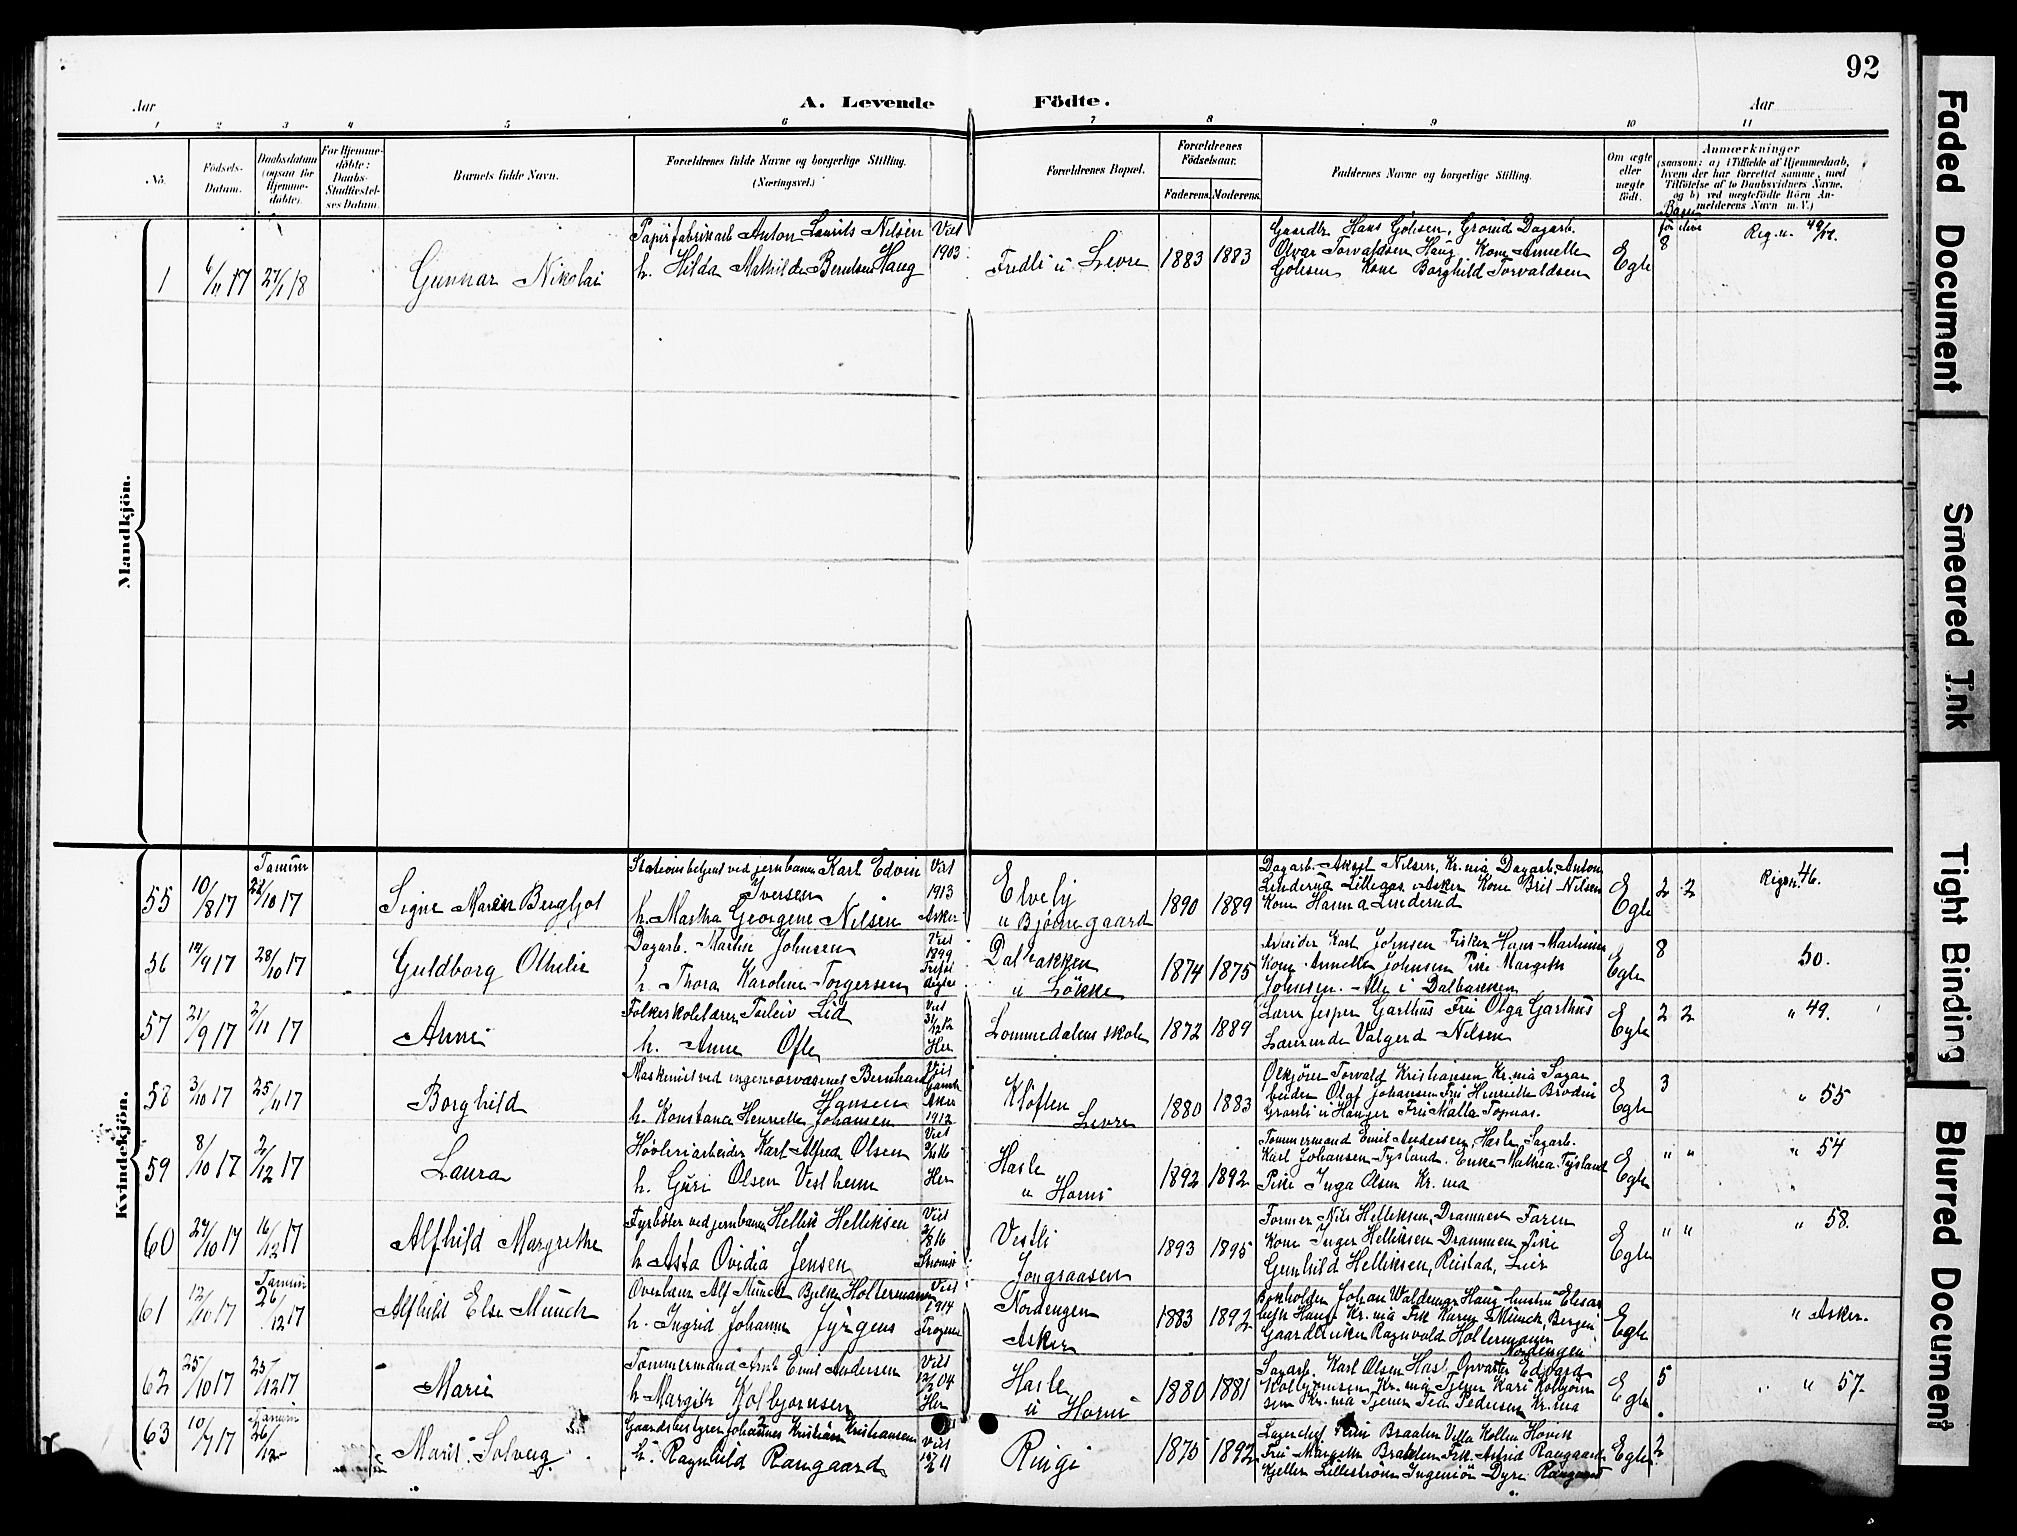 92
Aar
A. Levende Födte.
Aar
1 2 3 4 5 6 7 8 9 10 11
No.
Födsels-
Datum.
Daabsdatum
(ogsaa for
Hjemme-
döbte).
For Hjemme-
döbte:
Daabs-
Stadfæstel-
ses Datum.
Barnets fulde Navn.
Forældrenes fulde Navne og borgerlige Stilling.
(Næringsvei.)
Forældrenes Bopæl.
Forældrenes
Födselsaar.
Faderens. Moderens.
Faddernes Navne og borgerlige Stilling.
Om ægte
eller
uægte
født.
Anmærkninger
(saasom: a) i Tilfælde af Hjemmedaab,
hvem der har forrettet samme, med
Tilföielse af to Daabsvidners Navne,
og b) ved uægtefödte Börn An-
melderens Navn m. V.)
Mandkjön.
1 6/11 17 27/1 18 Gunnar Nikolai
Papirfabrikarb Anton Laurits Nilsen
h. Hilda Mathilde Berntsen Haug
Viet
1903
Fredli u Levre 1883 1883
Gaardbr Hans Gölisen, Dagarb.
Torvaldsen Haug, Kone Annette
Gölisen Kone Borghild Torvaldsen
Egte 8
Kvindekjön.
55 10/8 17 Tanum 22/10 17 Signe Maren Bergljot
Stationsbetjent ved jernbanen Karl Edvin
Iversen
h. Martha Georgene Nilsen
Viet
1913
Asker
Elveby
u Bjørnegaard 1890 1889
Dagarb. Aksel Nilsen, Kr.nia Dagarb. Anton
Linderud Asker Kone Brit Nilsen
Kone Hanna Linderud
Egte 2 2 46.
56 14/9 17 28/10 17 Guldborg Othelie
Dagarb. Martin Johnsen
h. Thora Karoline Torgersen
Viet
1899
Dalbakken
u Løkke 1874 1875
Arbeider Karl Johnsen Fisker Hans Martinsen
Kone Annette Johnsen Pike Margith
Johnsen. Alle i Dalbakken
Egte 8 50.
57 21/9 17 2/11 17 Anne
Folkeskolelærer Torleiv Lid
h. Anne Ofte
Viet
Her
Lommedalens skole 1872 1889
Lærer Jesper Garthus Fru Olga Garthus
Lærerinde Valgerd Nilsen
Egte 2 2 " 49.
58 3/10 17 25/11 17 Borghild
Maskinist ved ingeniørvæsenet Bernhard
Hansen
h. Konstance Henriette Johansen
Viet
Aker
1912
Kløften
Levre 1880 1883
Torvald Kristiansen Kr.nia Sagar
beider Olaf Johansen Fru Henriette Brodin
Granli u Hauger Fru Malla
Egte 3 " 55
59 8/10 17 2/12 17 Laura
Høvleriarbeider Karl Alfred Olsen
h. Guri Olsen Vestheim
Viet
Her
Hasle
u Horni 1892 1892
Tømmermand Emil Andersen, Hasle Sagarb.
Karl Johansen Tysland. Enke Mathea Tysland
Pike Inga Olsen Kr.nia
Egte " " " 54
60 27/10 17 16/12 17 Alfhild Margrethe
Fyrbøter ved jernbanen Hellik Helliksen
h. Asta Ovidia Jensen
Viet
Vestli
Jongsaasen 1893 1895
Former Nils Helliksen, Drammen
Kone Inger Helliksen Drammen Pike
Gunhild Helliksen, Reistad, Lier
Egte " " " 58.
61 12/10 17 Tanum 26/12 17 Alfhild Else Münch
Overlærer Alf Münch Bjelke Holtermann
h. Ingrid Johanne Jyrgens
Viet
1914
Nordengen
Asker 1883 1892
Bokholder Johan Waldemar Haug hustru Elisa
beth Haug Kr.nia Frk Karen Münch Bergen
Gaardbruker Ragnvald Holtermann
Nordengen
Egte " Asker.
62 25/10 17 25/12 17 Marie
Tømmermand Emil Andersen
h. Margith Kolbjørnsen
Viet
12/2 04
Her
Hasle
u Horni 1880 1881
Sagarb. Karl Olsen Hasle, Opvarter Edvard
Kolbjørnsen Kr.nia Tjener Kari Kolbjørn
sen Kr.nia Tjener Pedersen Kr.nia
Egte 5 " 57.
63 10/7 17 Tanum 26/12 Marit Solveig
Gaardsbestyrer Johannes Kristian Kristiansen
h. Ragnhild Ramgaard
Viet
Ringi 1875 1892
Lagerchef Braaten Villa Kollen Høvik
Fru Margith Braaten Frk Astrid Ramgaard
Kjeller Lillestrøm Ingeniør Dyre Ramgaard
Egte 2
Faded Document
Smeared Ink
Tight Binding
Blurred Document